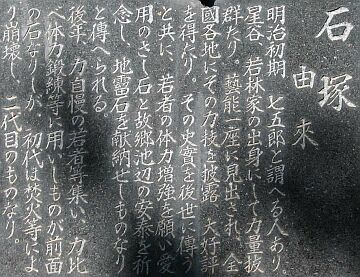 石塚
由來
明治初期 七五郎と謂へる人あり。
星谷、若林家の出身にして力量抜
群たり。藝能一座に見出され、全
國各地にその力技を披露、大好評
を得たり。その史實を後世に傳う
と共に、若者の体力増強を願い愛
用のさし石と故郷池辺の安泰を祈
念し、地霊石を献納せしものなり
と傳へられる。
後年、力自慢の若者等集い、力比
べ体力鍛練等に用いしものが前面
の石なりしが、初代は焚火等によ
り崩壊し、二代目のものなり。